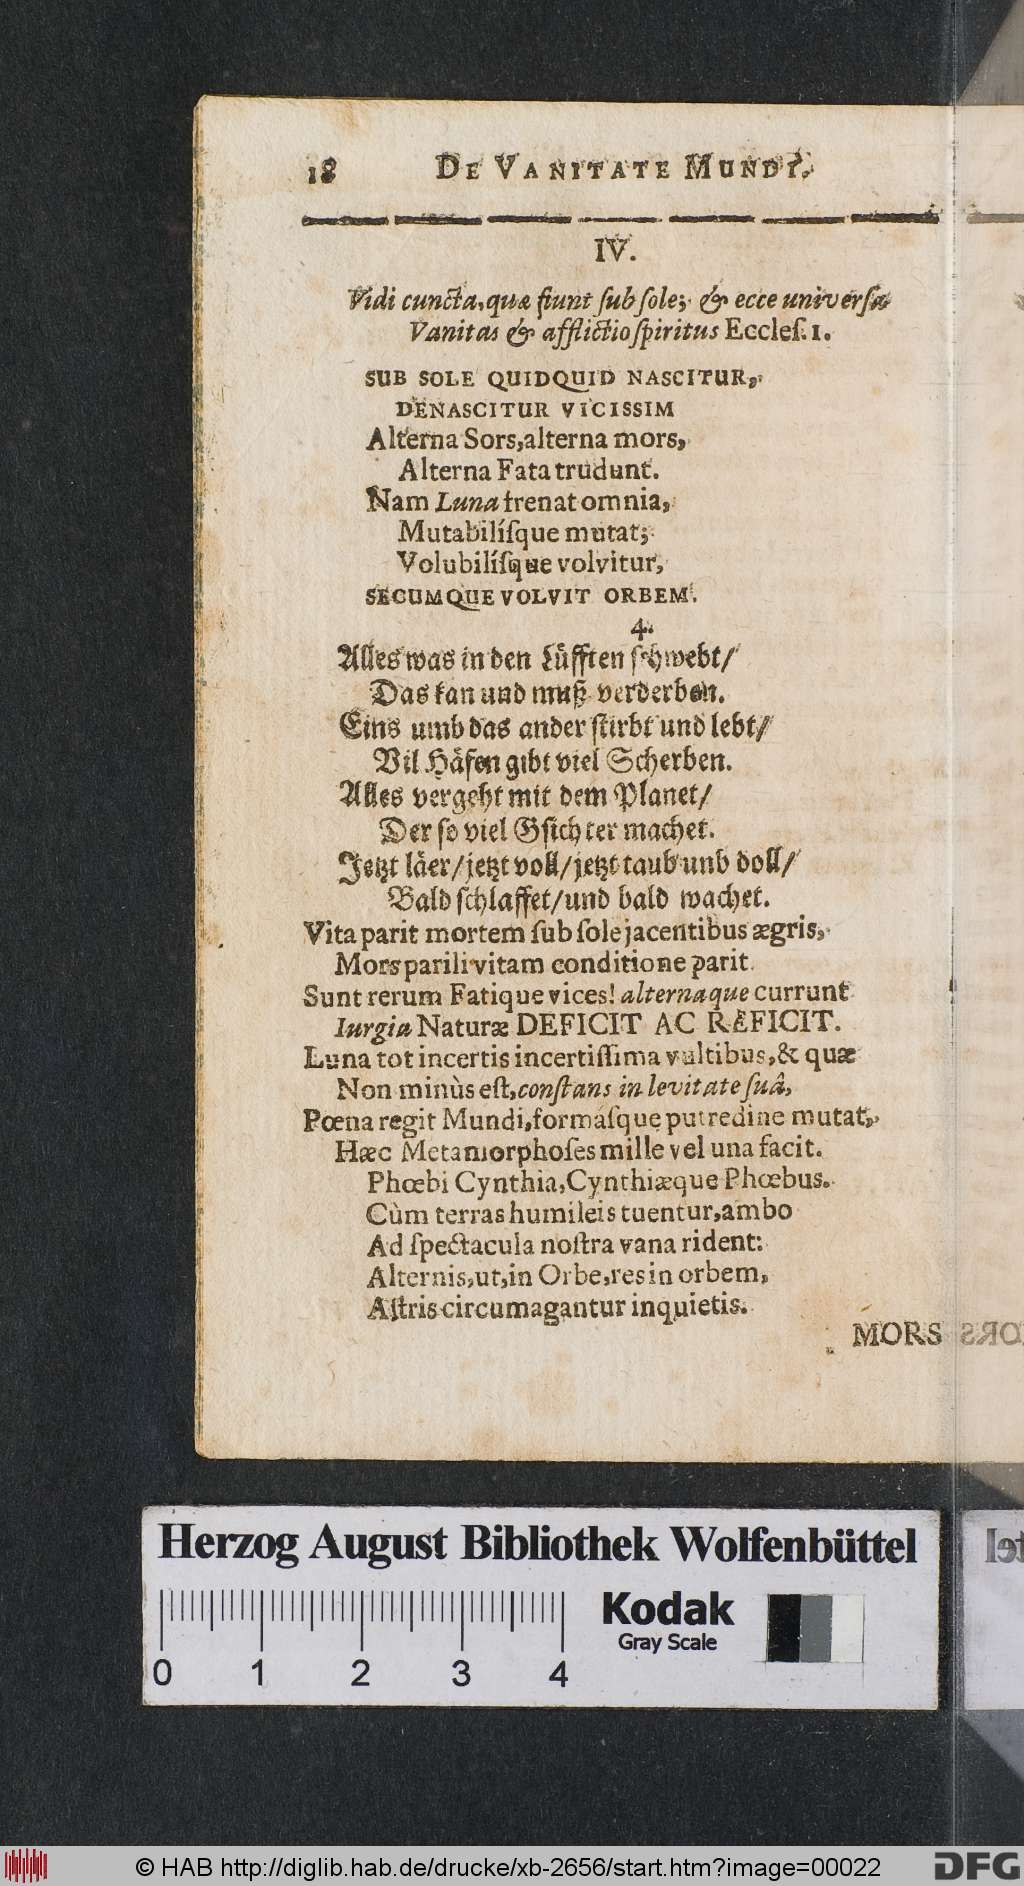 18 DE VANITATE MUNDI.
IV.
Vidi cuncta, quæ fiunt ſub ſole; & ecce univerſa
Vanitas & afflictio ſpiritus Eccleſ. 1.
SUB SOLE QUIDQUID NASCITUR,
DENASCITUR VICISSIM
Alterna Sors, alterna mors,
Alterna Fata trudunt.
Nam Luna frenat omnia,
Mutabilíſque mutat;
Volubilíſque volvitur,
SECUMQUE VOLVIT ORBEM.
4.
Alles was in den Lüfften ſchwebt/
Das kan und muß verderben.
Eins umb das ander ſtirbt und lebt/
Vil Häfen gibt viel Scherben.
Alles vergeht mit dem Planet/
Der ſo viel Gſichter machet.
Jetzt läer/ jetzt voll/ jetzt taub unb doll/
Bald ſchlaffet/ und bald wachet.
Vita parit mortem ſub ſole jacentibus ægris,
Mors parili vitam conditione parit.
Sunt rerum Fatique vices! alternaque currunt
Iurgia Naturæ DEFICIT AC REFICIT.
Luna tot incertis incertiſſima vultibus, & quæ
Non minùs eſt, conſtans in levitate ſuâ,
Pœna regit Mundi, formáſque putredine mutat,
Hæc Metamorphoſes mille vel una facit.
Phœbi Cynthia, Cynthiæque Phœbus.
Cùm terras humileis tuentur, ambo
Ad ſpectacula noſtra vana rident:
Alternis, ut, in Orbe, res in orbem,
Aſtris circumagantur inquietis.
MORS
Herzog August Bibliothek Wolfenbüttel
Kodak
Gray Scale
0 1 2 3 4
© HAB http://diglib.hab.de/drucke/xb-2656/start.htm?image=00022
DFG